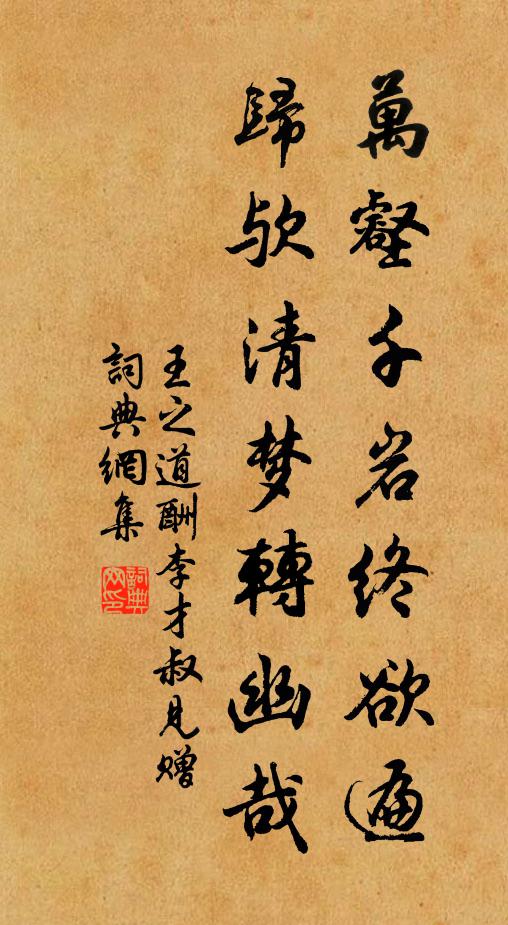 萬壑千岩終欲遍
歸欤清梦轉幽哉
王之道酬李才叔見贈
詞典網集
詞典網印